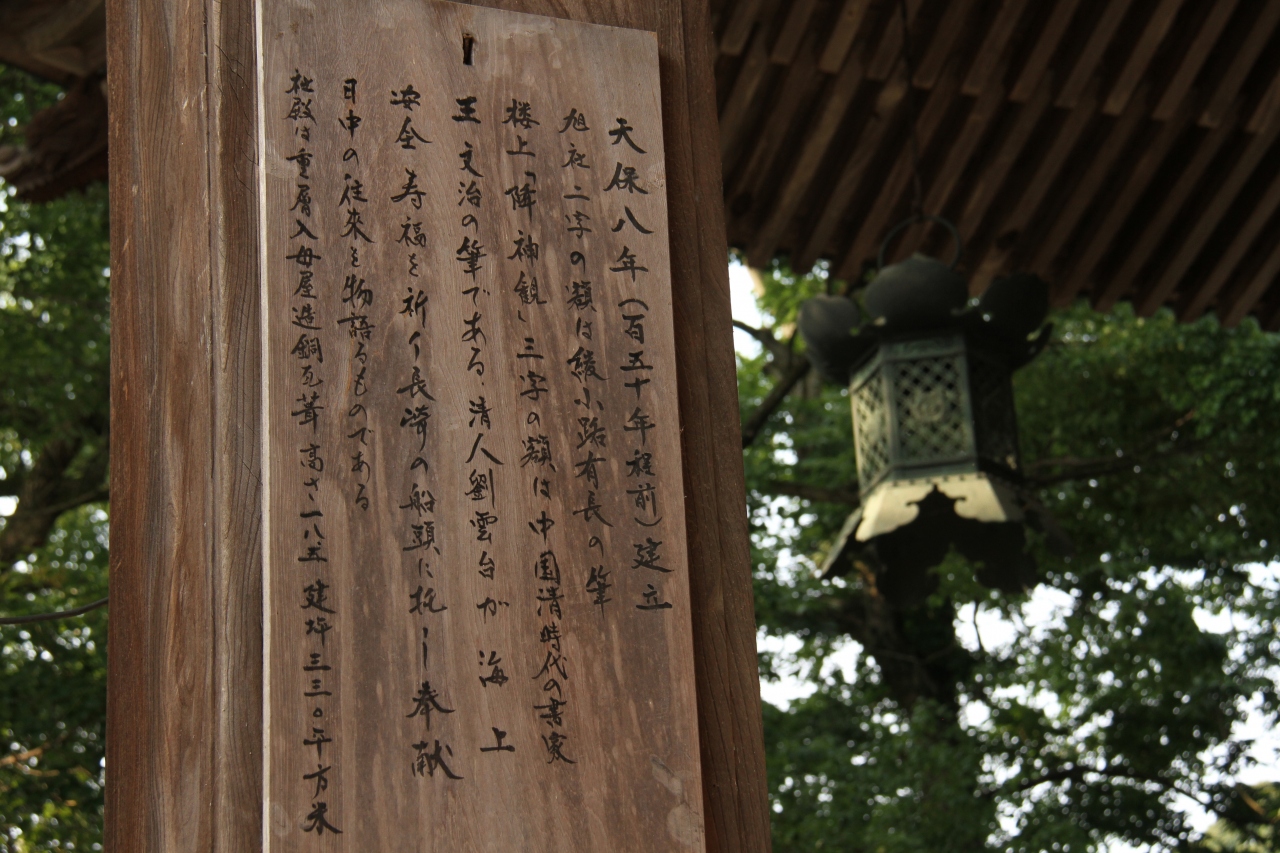 天保八年(百五十年程前)建立
旭社二字の額は綾小路有長の筆
楼上「降神観」三字の額は中国清時代の書家
王文治の筆である、清人劉雲台が海上
安全寿福を祈り長崎の船頭に托し奉献
日中の往来を物語るものである
社殿は重層入母屋造銅瓦葺高サ一八五建坪三三〇平方米